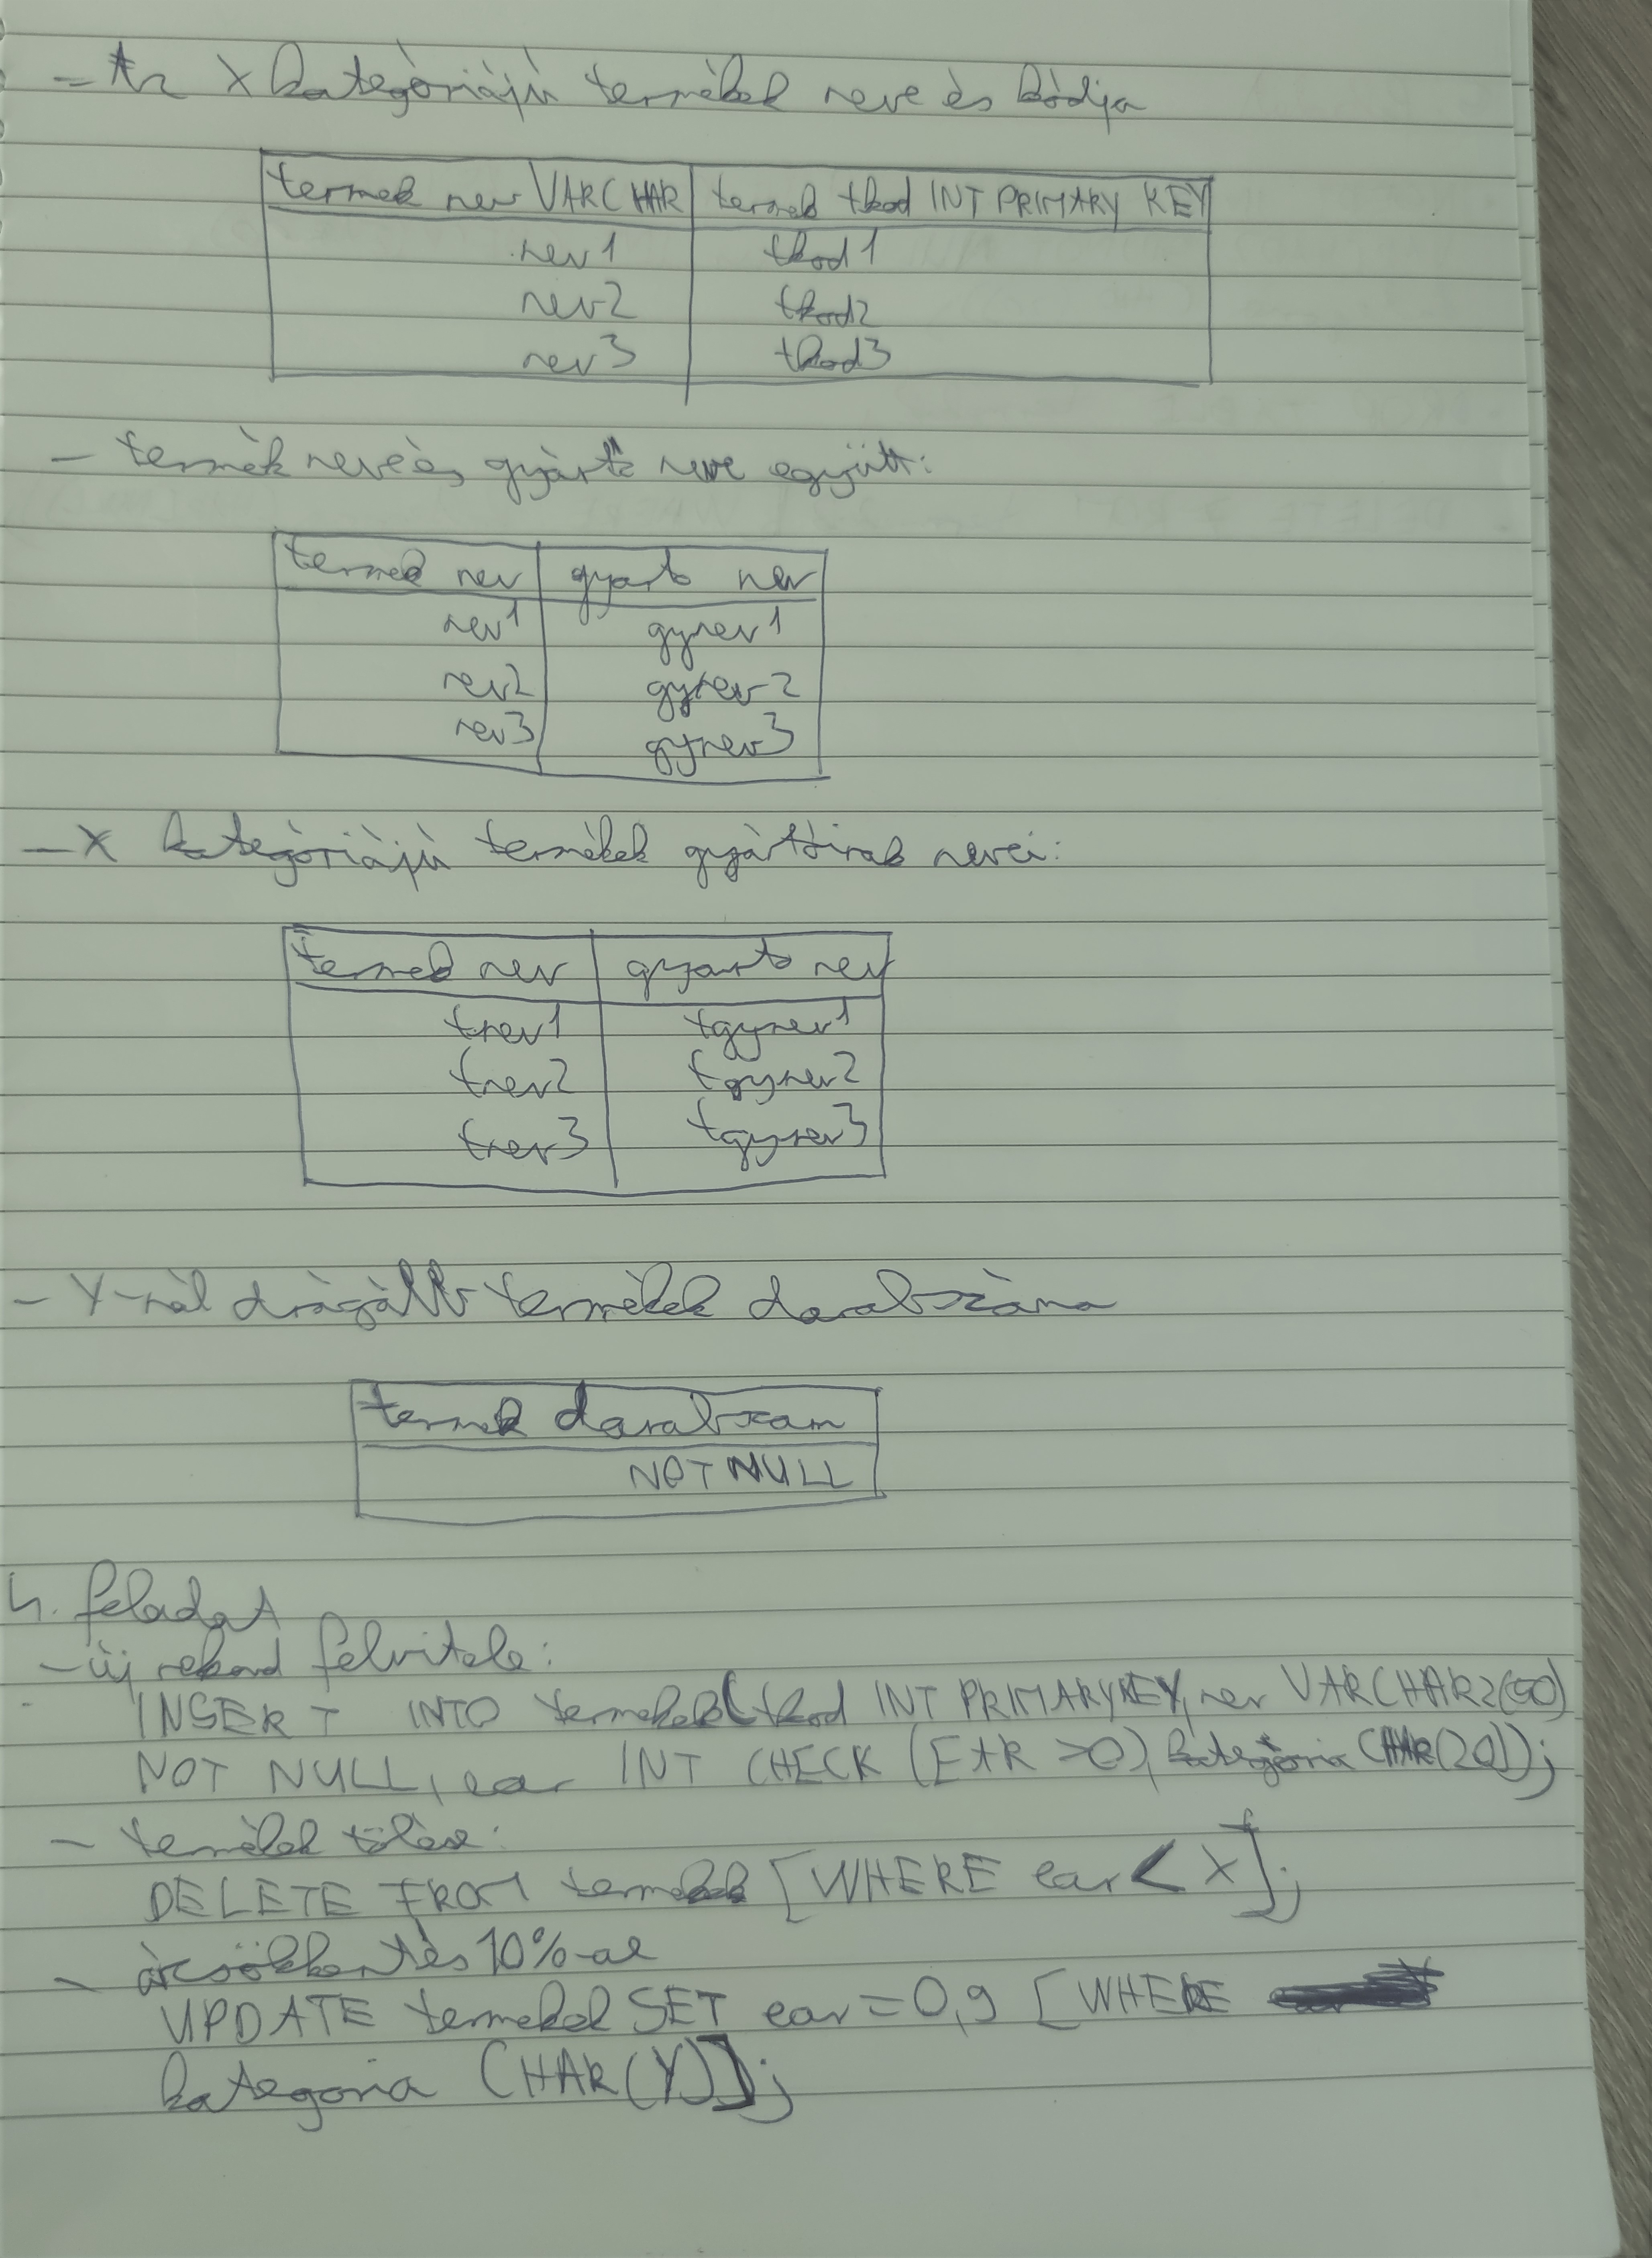 - Az X kategòriàjù termèkek neve ès kòdja
termek nev VARCHAR | termek tkod INT PRIMARY KEY
nev1 | tkod1
nev2 | tkod2
nev3 | tkod3
- termèk neve ès gyàrtò neve együtt:
termek nev | gyarto nev
nev1 | gynev1
nev2 | gynev2
nev3 | gynev3
- X kategòriàjù termèkek gyàrtòinak nevei:
termek nev | gyarto nev
tnev1 | tgynev1
tnev2 | tgynev2
tnev3 | tgynev3
- Y-nàl dràgàbb termèkek darabszàma
termek darabszam
NOT NULL
4. feladat
- új rekord felvitele:
INSERT INTO termekek (tkod INT PRIMARY KEY, nev VARCHAR2(50)
NOT NULL, ear INT CHECK (EAR >0), kategória CHAR(20));
- termèkek tölèse:
DELETE FROM termekek [WHERE ear < X];
- àrcsökkentès 10%-al
UPDATE termekek SET ear=0,9 [WHERE
kategoria CHAR(Y)];